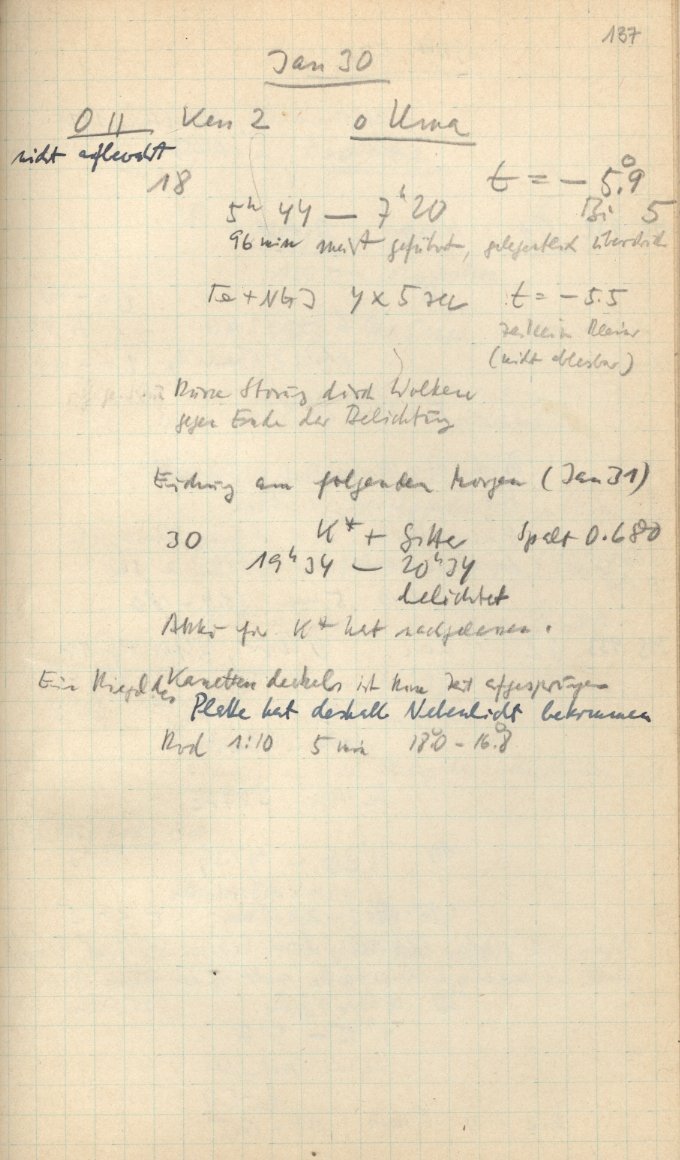 137
Jan 30
O 11 Ken 2 o Uma
nicht aufbewahrt
18 t = - 5.°9
5h 44 — 7h 20 Bi 5
96 min meist geführt, gelegentlich
Fe + 4 x 5 sec t = - 5.5
(nicht ablesbar)
Kurze Störung durch Wolken
gegen Ende der Belichtung
Eichung am folgenden Morgen (Jan 31)
30 K* + Gitter Spalt 0.680
19h 34 — 20h 34
belichtet
Akku für K* hat nachgelassen.
Ein Riegel des Kassettendeckels ist aufgesprungen
Platte hat deshalb Nebenlicht bekommen
Rod 1:10 5 min 18°0 - 16°8